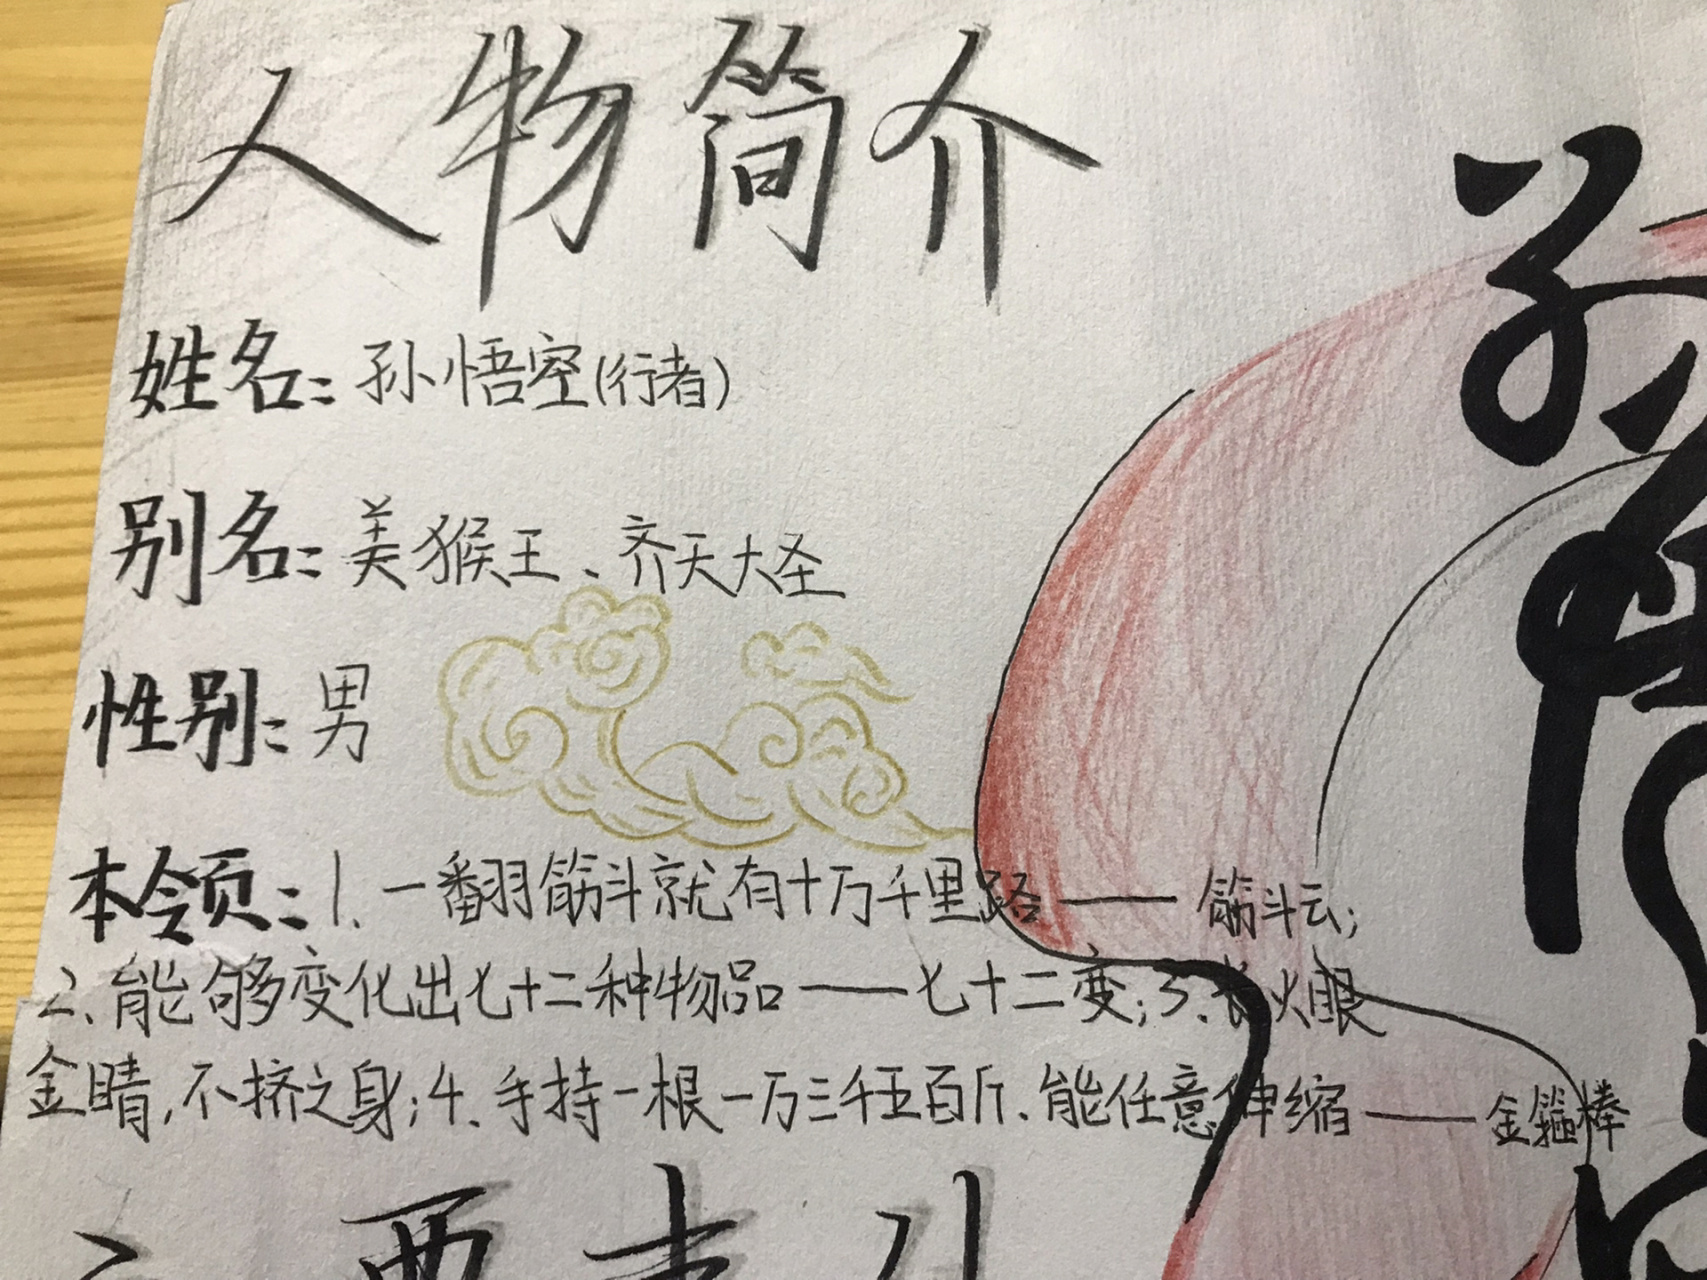 人物简介
姓名：孙悟空(行者)
别名：美猴王、齐天大圣
性别：男
本领：1、一翻筋斗就有十万千里路——筋斗云；
2、能够变化出七十二种物品——七十二变；3、长火眼
金睛，不挤之身；4、手持一根一万三千五百斤、能任意伸缩——金箍棒
孙
悟